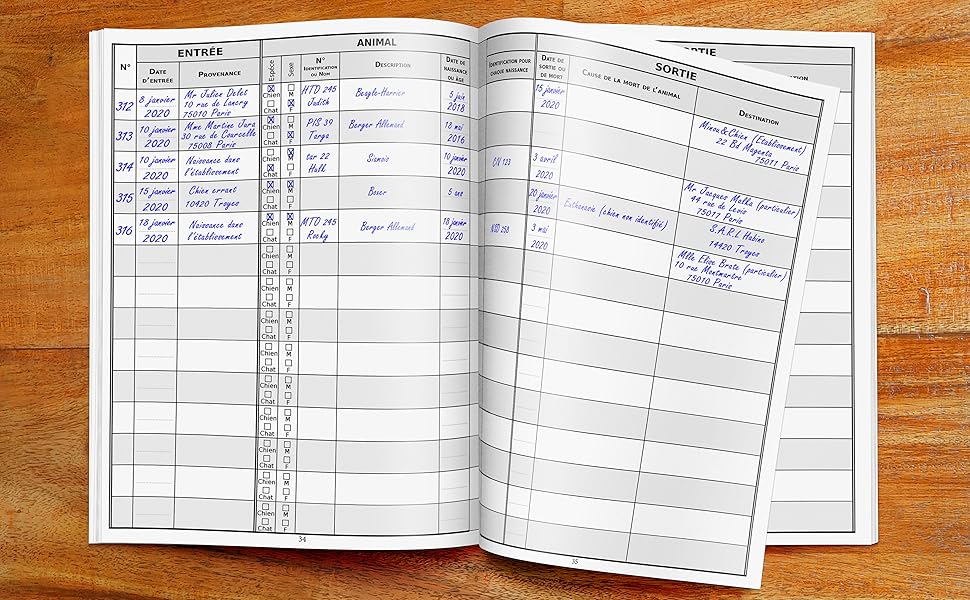 ENTRÉE
ANIMAL
N°
DATE D'ENTRÉE
PROVENANCE
Espèce
Sexe
N° IDENTIFICATION OU NOM
DESCRIPTION
DATE DE NAISSANCE OU ÂGE
312
8 janvier 2020
Mr Julien Delet
10 rue de Lancry
75010 Paris
Chien M
Chat F
HTD 245
Judith
Beagle-Harrier
5 juin 2018
313
10 janvier 2020
Mme Martine Jura
30 rue de Courcelle
75008 Paris
Chien M
Chat F
PIS 39
Targa
Berger Allemand
12 mai 2016
314
10 janvier 2020
Naissance dans
l'établissement
Chien M
Chat F
tar 22
Hulk
Siamois
10 janvier 2020
315
15 janvier 2020
Chien errant
10420 Troyes
Chien M
Chat F
Boxer
5 ans
316
18 janvier 2020
Naissance dans
l'établissement
Chien M
Chat F
MTD 245
Rocky
Berger Allemand
18 janvier 2020
Chien M
Chat F
Chien M
Chat F
Chien M
Chat F
Chien M
Chat F
Chien M
Chat F
Chien M
Chat F
Chien M
Chat F
Chien M
Chat F
Chien M
Chat F
34
SORTIE
IDENTIFICATION POUR CHAQUE NAISSANCE
DATE DE SORTIE OU DE MORT
CAUSE DE LA MORT DE L'ANIMAL
DESTINATION
15 janvier 2020
Minou&Chien (Etablissement)
22 Bd Magenta
75011 Paris
133
3 avril 2020
Mr Jacques Malka (particulier)
44 rue de Levis
75017 Paris
20 janvier 2020
Euthanasie (chien non identifié)
S.A.R.L Hubino
14420 Troyes
258
3 mai 2020
Mlle Elise Brote (particulier)
10 rue Montmartre
75010 Paris
35